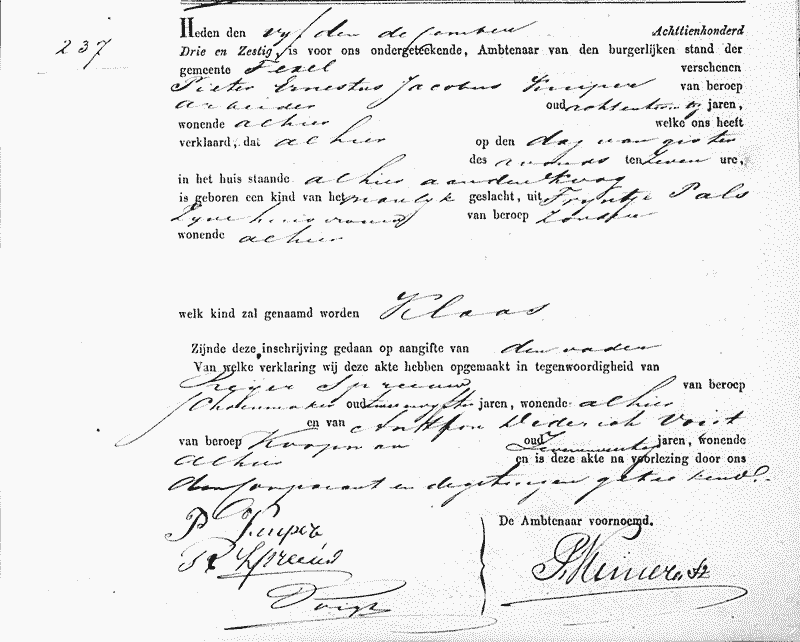 237
Heden den vijfden december Achttienhonderd
Drie en Zestig, is voor ons ondergeteekende, Ambtenaar van den burgerlijken stand der
gemeente Texel verschenen
Pieter Ernestus Jacobus Kuiper van beroep
arbeider oud achtentwintig jaren,
wonende alhier welke ons heeft
verklaard, dat alhier op den dag van gisteren
des avonds ten zeven ure,
in het huis staande alhier aan den Koog
is geboren een kind van het manlijk geslacht, uit Trijntje Pals
Zijne huisvrouw van beroep Zonder
wonende alhier
welk kind zal genaamd worden Klaas
Zijnde deze inschrijving gedaan op aangifte van den vader
Van welke verklaring wij deze akte hebben opgemaakt in tegenwoordigheid van
Reijer Spreeuw van beroep
Schoenmaker oud jaren, wonende alhier
en van Anthon Diederich Voigt
van beroep Koopman oud jaren, wonende
alhier en is deze akte na voorlezing door ons
den Comparant en de getuigen geteekend.
P Kuiper
R Spreeuw
Voigt
De Ambtenaar voornoemd,